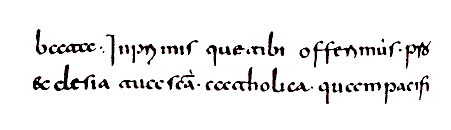 bata· Inprimis quetibi offerimus· pro
ecclesia tua scā· catholica· quam pacifi